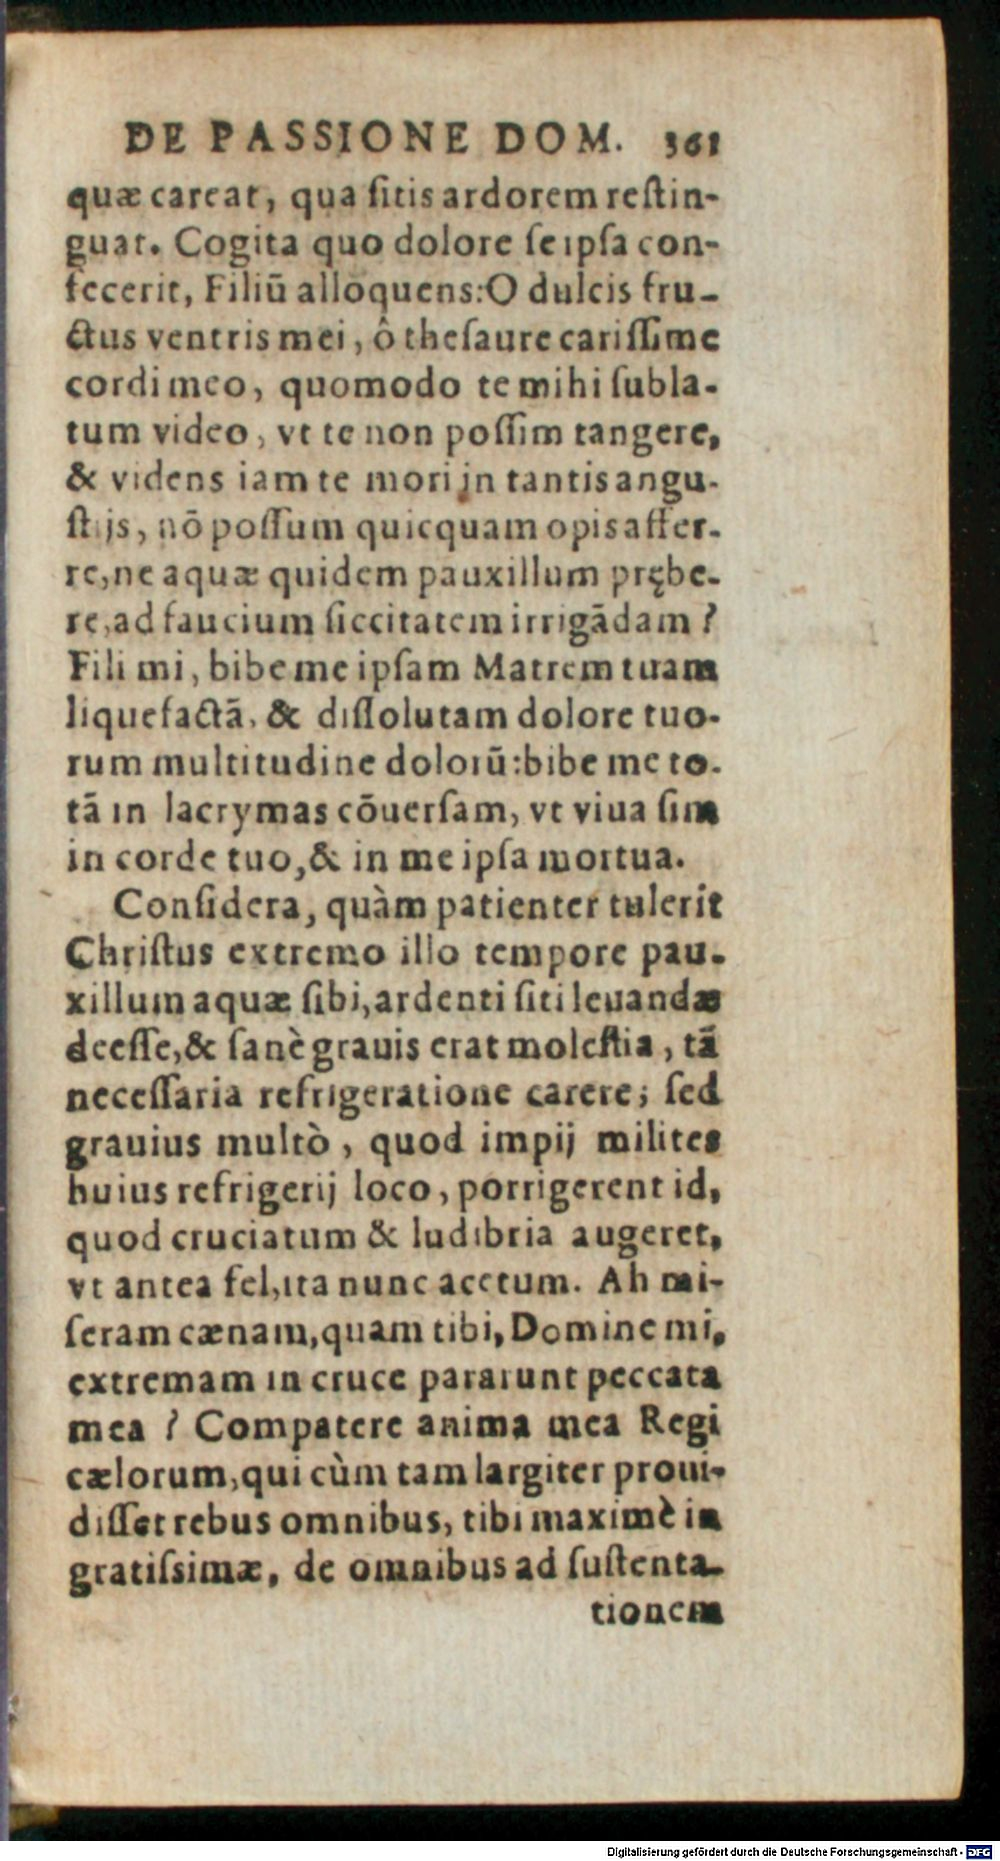 DE PASSIONE DOM. 361
quæ careat, qua ſitis ardorem reſtin-
guat. Cogita quo dolore ſe ipſa con-
fecerit, Filiū alloquens: O dulcis fru-
ctus ventris mei, ô theſaure cariſſime
cordi meo, quomodo te mihi ſubla-
tum video, vt te non poſſim tangere,
& videns iam te mori in tantis angu-
ſtijs, nō poſſum quicquam opis affer-
re, ne aquæ quidem pauxillum prębe-
re, ad faucium ſiccitatem irrigādam?
Fili mi, bibe me ipſam Matrem tuam
liquefactā, & diſſolutam dolore tuo-
rum multitudine dolorū: bibe me to-
tā in lacrymas cōuerſam, vt viua ſim
in corde tuo, & in me ipſa mortua.
Conſidera, quàm patienter tulerit
Chriſtus extremo illo tempore pau-
xillum aquæ ſibi, ardenti ſiti leuandæ
deeſſe, & ſanè grauis erat moleſtia, tā
neceſſaria refrigeratione carere; ſed
grauius multò, quod impij milites
huius refrigerij loco, porrigerent id,
quod cruciatum & ludibria augeret,
vt antea fel, ita nunc acetum. Ah mi-
ſeram cænam, quam tibi, Domine mi,
extremam in cruce pararunt peccata
mea? Compatere anima mea Regi
cælorum, qui cùm tam largiter proui-
diſſet rebus omnibus, tibi maximè in
gratiſsimæ, de omnibus ad ſuſtenta-
tionem
Digitalisierung gefördert durch die Deutsche Forschungsgemeinschaft - DFG